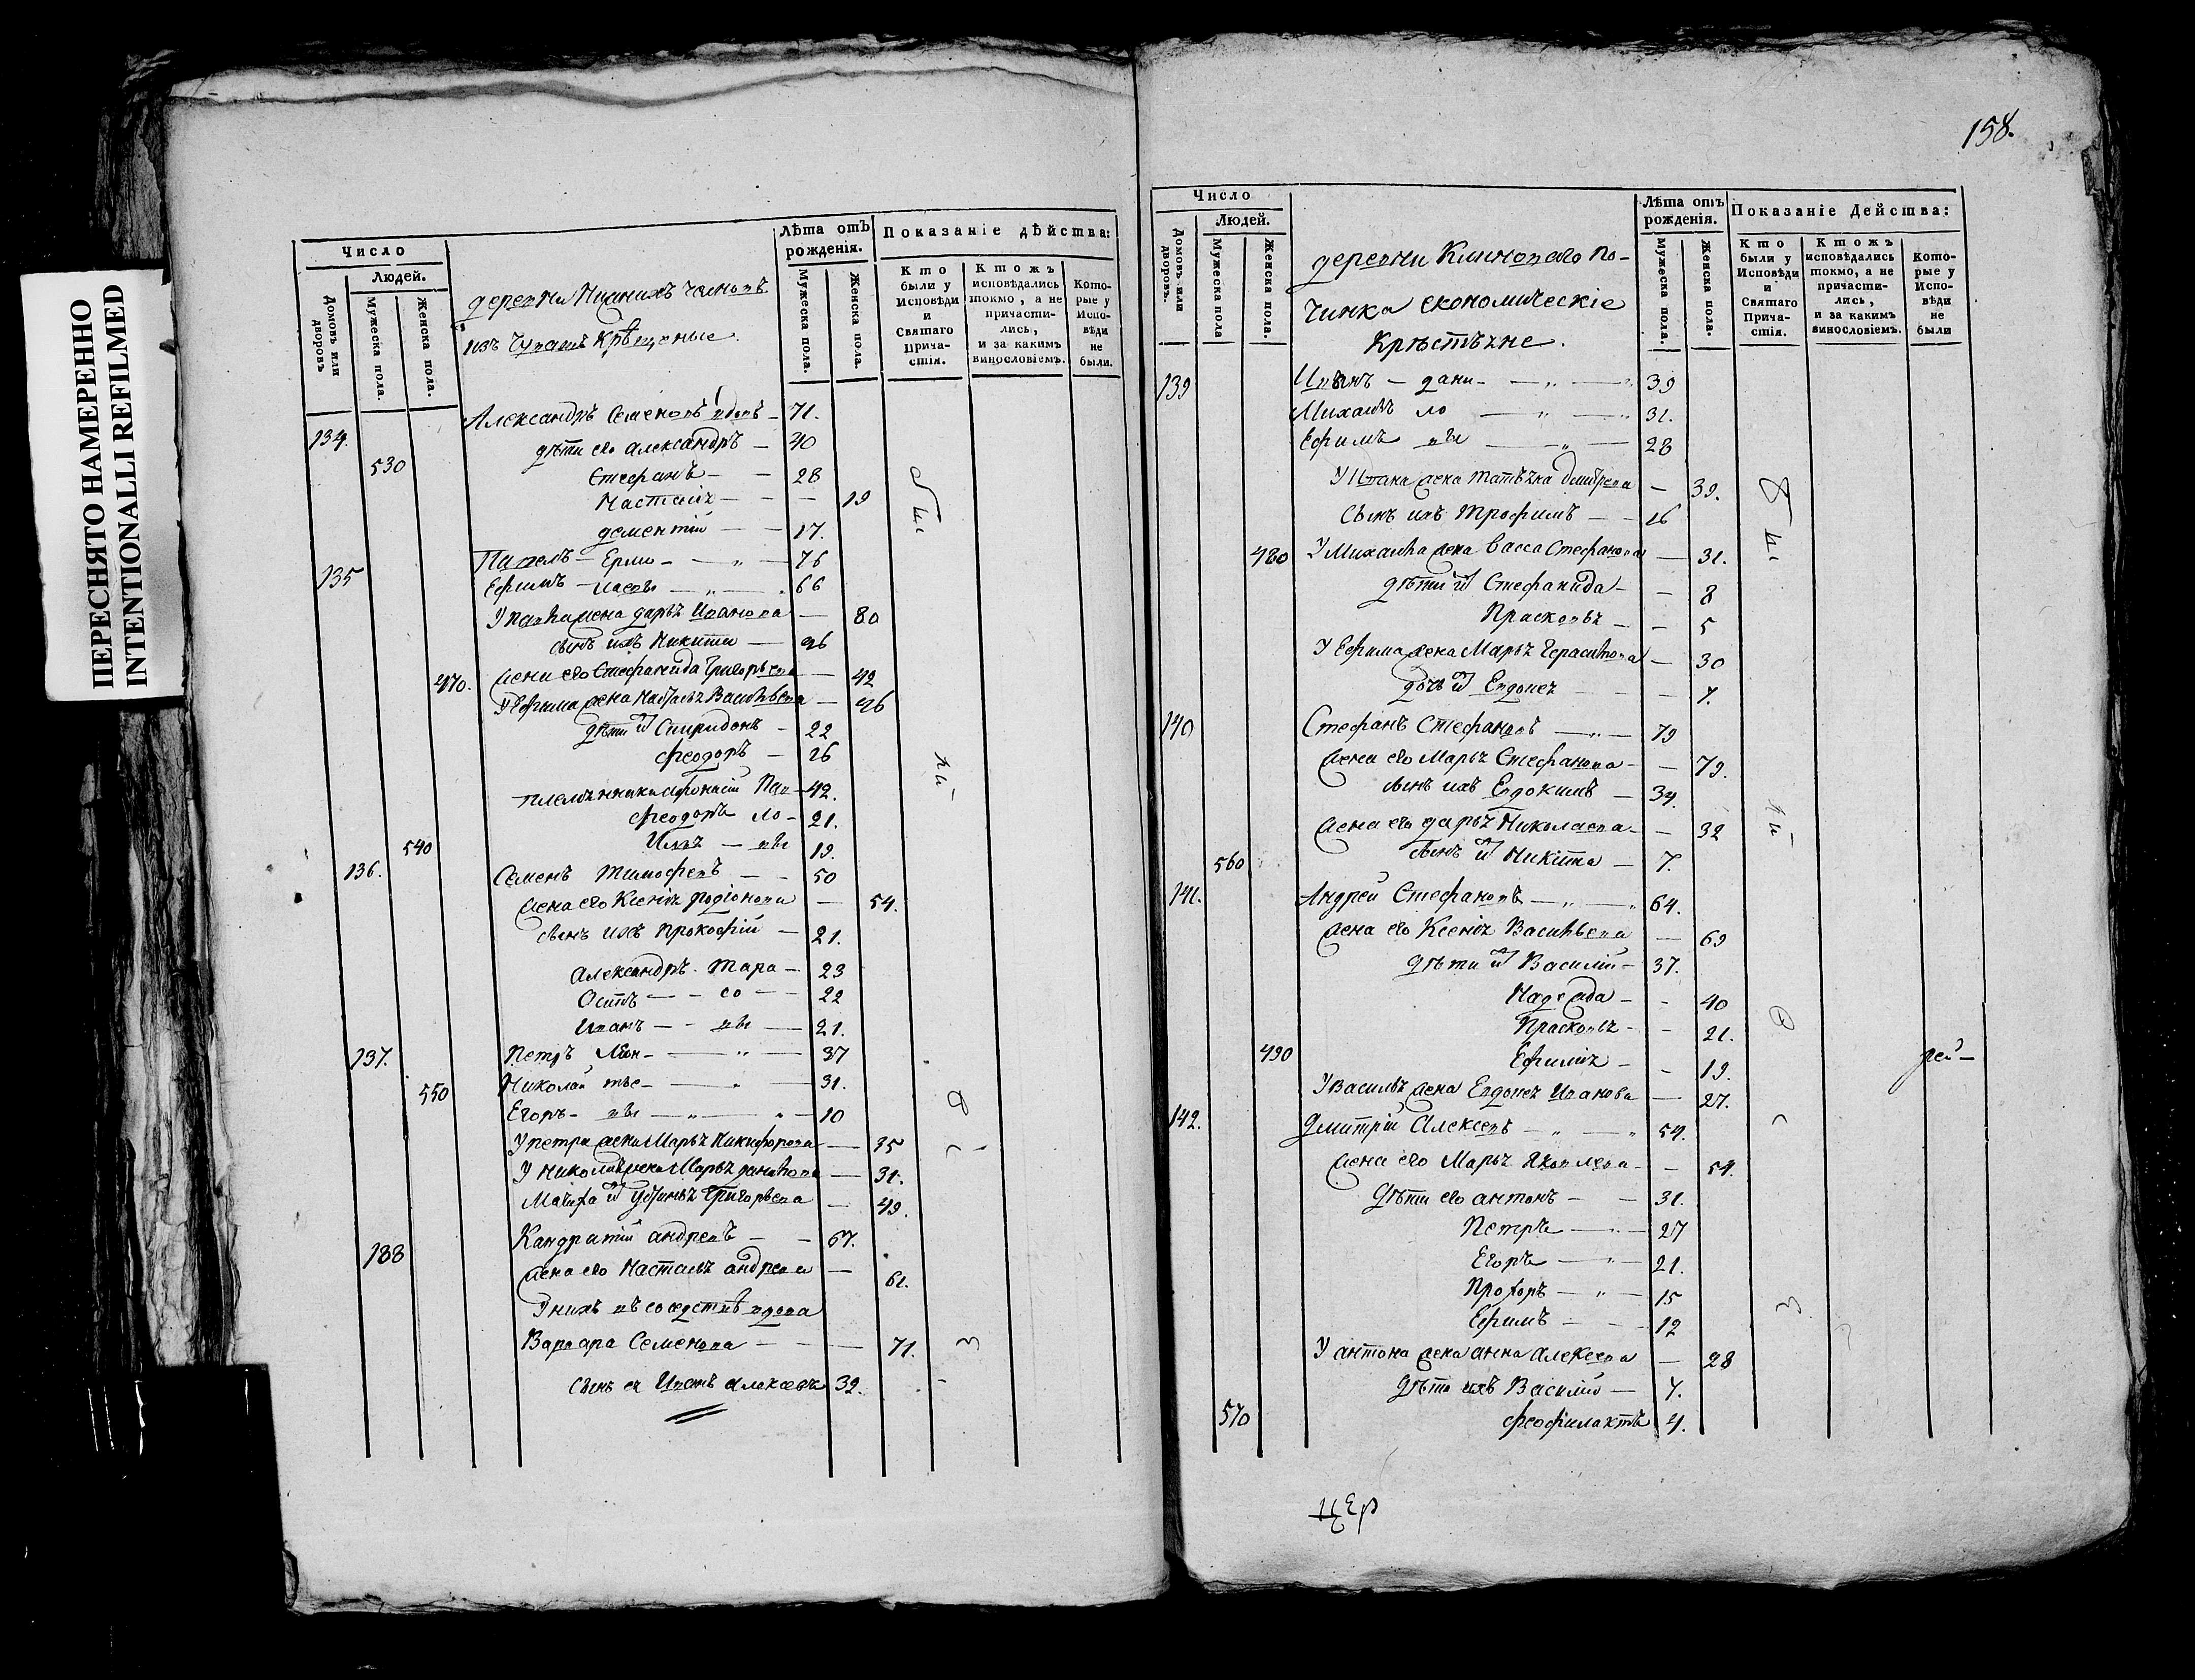 ПЕРЕСНЯТО НАМЕРЕННО
INTENTIONALLI REFILMED
Число
Людей.
Домовъ или дворовъ
Мужеска пола.
Женска пола.
деревни Нижнихъ Челновъ
изъ Чувашъ Крещеные.
Лѣта отъ рожденія.
Мужеска пола.
Женска пола.
Показаніе дѣйства:
Кто были у Исповѣди и Святаго Прича-стія.
Ктожъ исповѣдались токмо, а не причасти-лись, и за какимъ винословіемъ.
Кото-рые у Испо-вѣди не были.
134. Александръ Семеновъ вдовъ - 71.
530 дѣти его Александръ - 40
Стефанъ - - 28
Настасія - - - 19
Дементій - - 17.
135 Павелъ - Ермо - 76
Ефимъ - - 66
У Павла жена Дарья Иванова - 80
сынъ ихъ Никита - 46
470. жена его Стефанида Григорьева - 42
У Ефима жена Наталья Васильева - 46
дѣти их Спиридонъ - 22
Феодоръ - 26
племянники Афонасій Пав - 42.
Феодоръ ло - 21.
540 Илья - вы 19.
136. Семенъ Тимофеевъ - - 50
жена его Ксенія Родіонова - 54.
сынъ ихъ Прокофій - 21.
Александръ. Тара - 23
Осипъ - - со - - 22
Иванъ - - вы - 21.
137. Петръ - 37
550 Николай - 31.
Егоръ - вы - 10
У Петра жена Марья Никифорова - 35
У Николая жена Марья Данилова - 31.
Мачиха их Устинья Григорьева - 49.
138 Кандратій Андреевъ - - 67.
жена его Настасья Андреева - 61.
У нихъ въ соседстве вдова
Варвара Семенова - - - 71.
сынъ ея Иванъ Алексеевъ 32.
158.
Число
Людей.
Домовъ или дворовъ.
Мужеска пола
Женска пола.
деревни Клиноваго По-
чинка економическіе
Крестьяне.
Лѣта отъ рожденія.
Мужеска пола.
Женска пола.
Показаніе Действа:
Кто были у Исповѣди и Святаго Прича-стія.
Ктожъ исповѣдались токмо, а не причасти-лись, и за какимъ винословіемъ.
Кото-рые у Испо-вѣди не были
139 Иванъ - дани - 39
Михаилъ ло - 31.
Ефимъ вы - 28
У Ивана жена Татьяна Дмитрева - 39.
сынъ ихъ Трофимъ - - 16
480 У Михаила жена Васса Стефанова - 31.
дѣти их Стефанида - - 8
Прасковья - - 5
У Ефима жена Марья Герасимова - 30
дочь их Евдокея - - 7.
140 Стефанъ Стефановъ - 79
жена его Марья Стефанова - - 79.
сынъ ихъ Евдокимъ - 34.
жена его Дарья Николаева - - 32
560 сынъ их Никита - 7.
141. Андрей Стефановъ - 64.
жена его Ксенія Васильева - 69
дѣти их Василій - 37.
Надежда - - 40
Прасковья - - 21.
490 Ефимія - - 19.
У Василья жена Евдокея Иванова - 27.
142. Дмитрій Алексеевъ - 54.
жена его Марья Яковлева - - 54.
Дѣти его Антонъ - - 31.
Петръ - - 27
Егоръ - - 21.
Прохоръ - - 15
Ефимъ - - 12
У Антона жена Анна Алексеева - 28
Дѣти ихъ Василій - 7.
570 Феофилактъ 4.